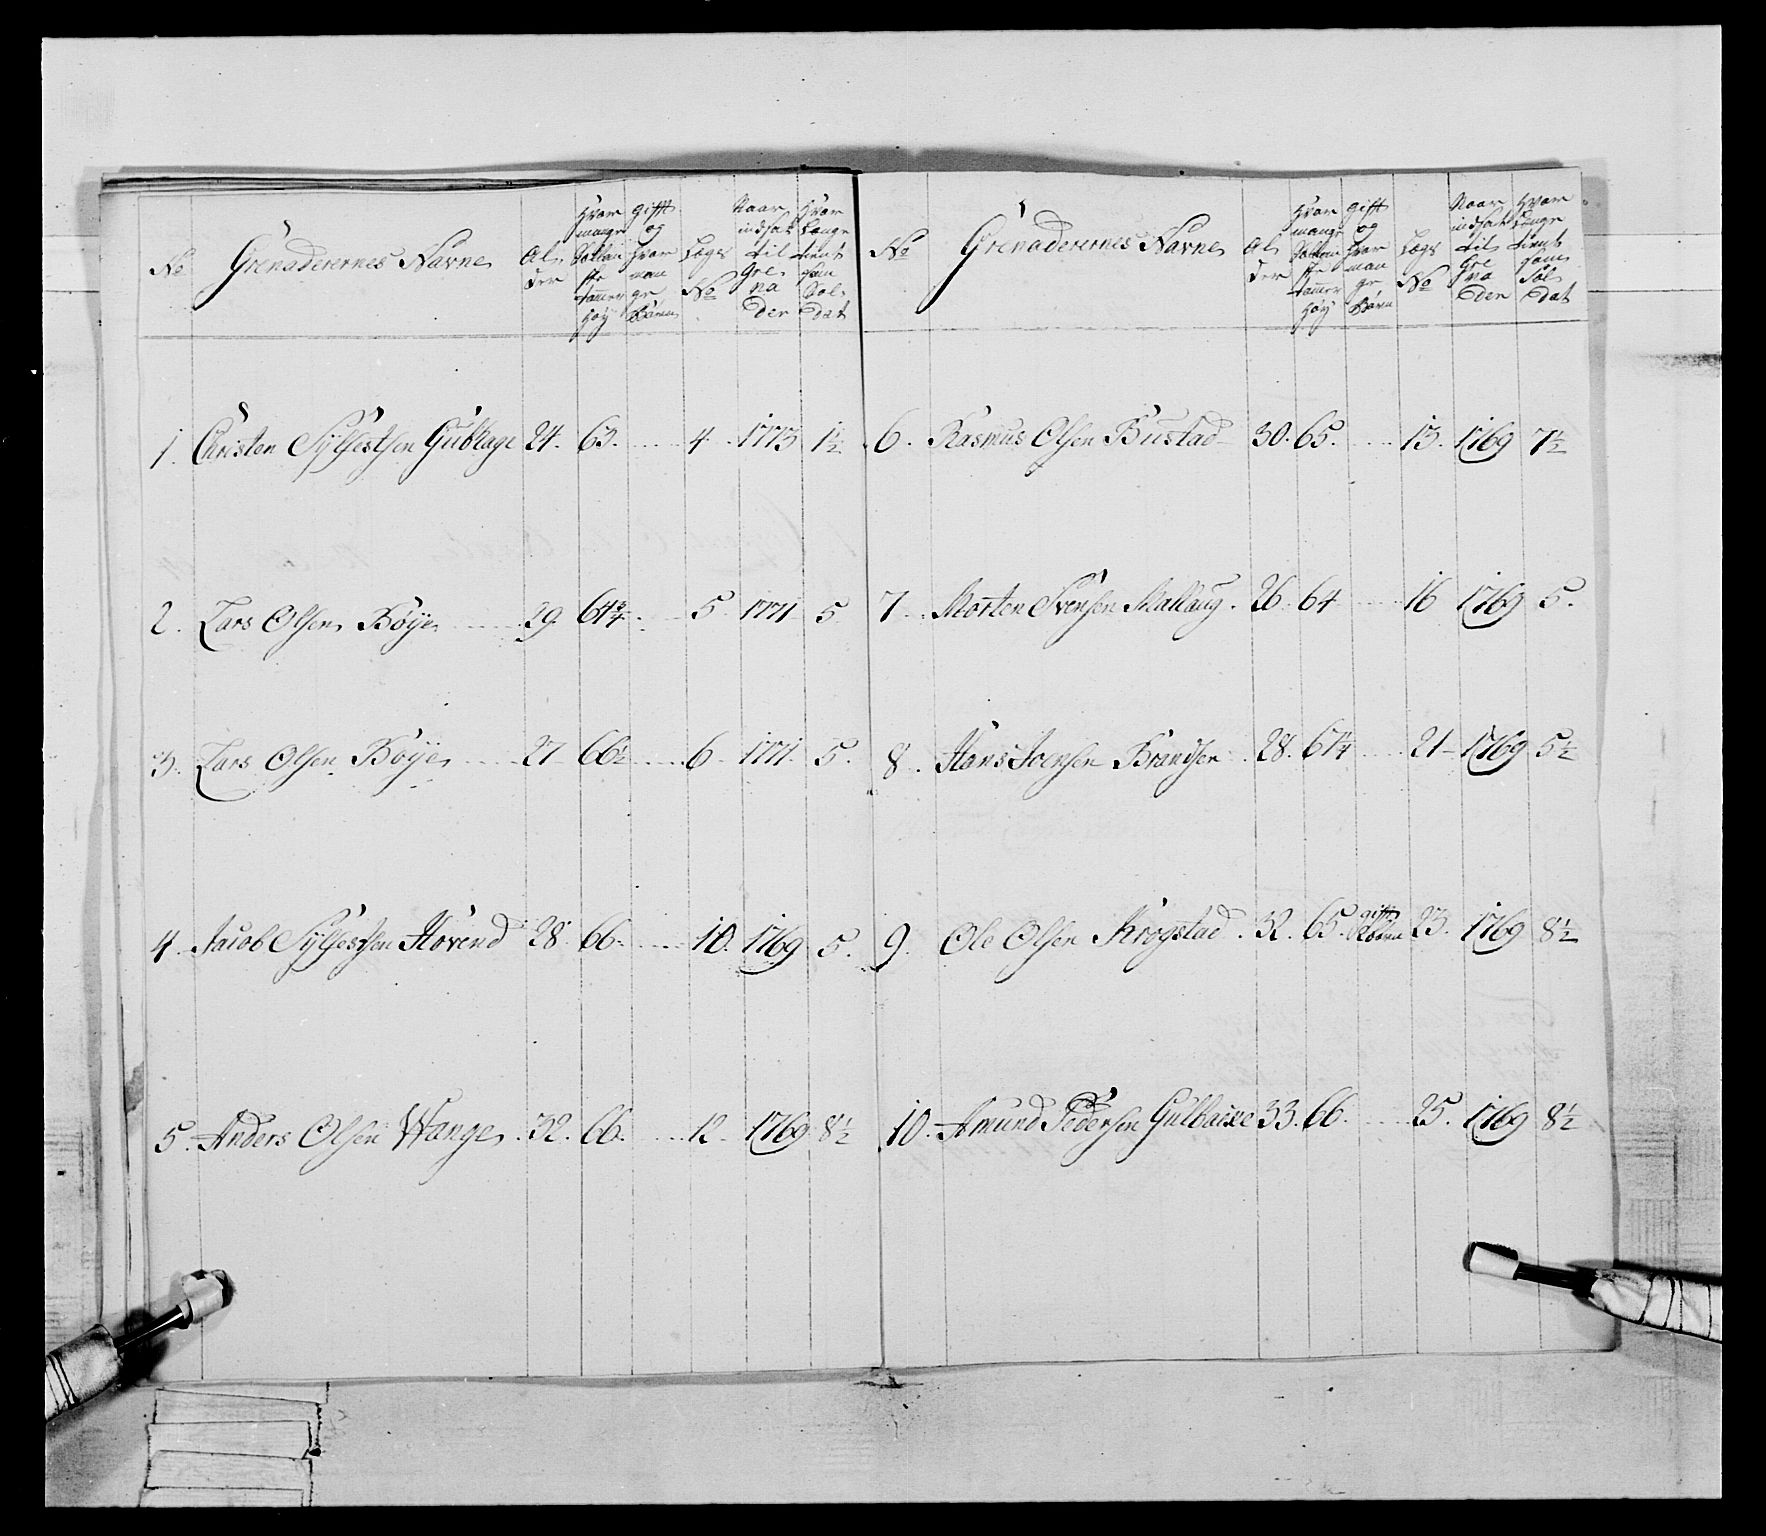 No Grenaderernes Navne Al der Hvor mange Tommer høy gifft og hvor man ge Børn Lægs No Naar indsat til Gre na der Hvor Længe tient som Sol dat
1. Christen Sylfestsen Gublage 24. 63. 4. 1773 1½
2. Lars Olsen Bøye 29. 64¾. 5. 1771 5.
3. Lars Olsen Bøye 27 66½ 6. 1771. 5.
4. Jacob Sylfestsen Hovend 28. 66. 10. 1769 5.
5. Anders Olsen Wange. 32. 66. 12. 1769 8½
No Grenaderernes Navne Al der Hvor mange Tommer høy gifft og hvor man ge Børn Lægs No Naar indsat til Gre na der Hvor Længe tient som Sol dat
6. Rasmus Olsen Bustad 30. 65. 13. 1769 7½
7. Morten Svensen Mallaug. 26. 64 16 1769 5.
8. Hans Joensen Brandsen 28. 67¼ 21 1769 5½
9. Ole Olsen Krogstad. 32. 65. gifft Børn 23. 1769 8½
10. Amund Pedersen Gulbaixe 33. 66. 25. 1769 8½